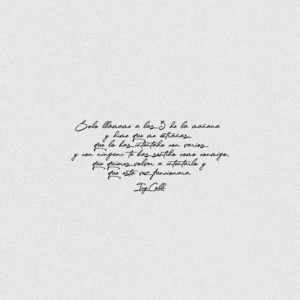 Solo llámame a las 3 de la mañana
y dime que me extrañas,
que lo has intentado con varios
y con ninguno te has sentido como conmigo,
que quieres volver a intentarlo y
que esta vez funcionara.